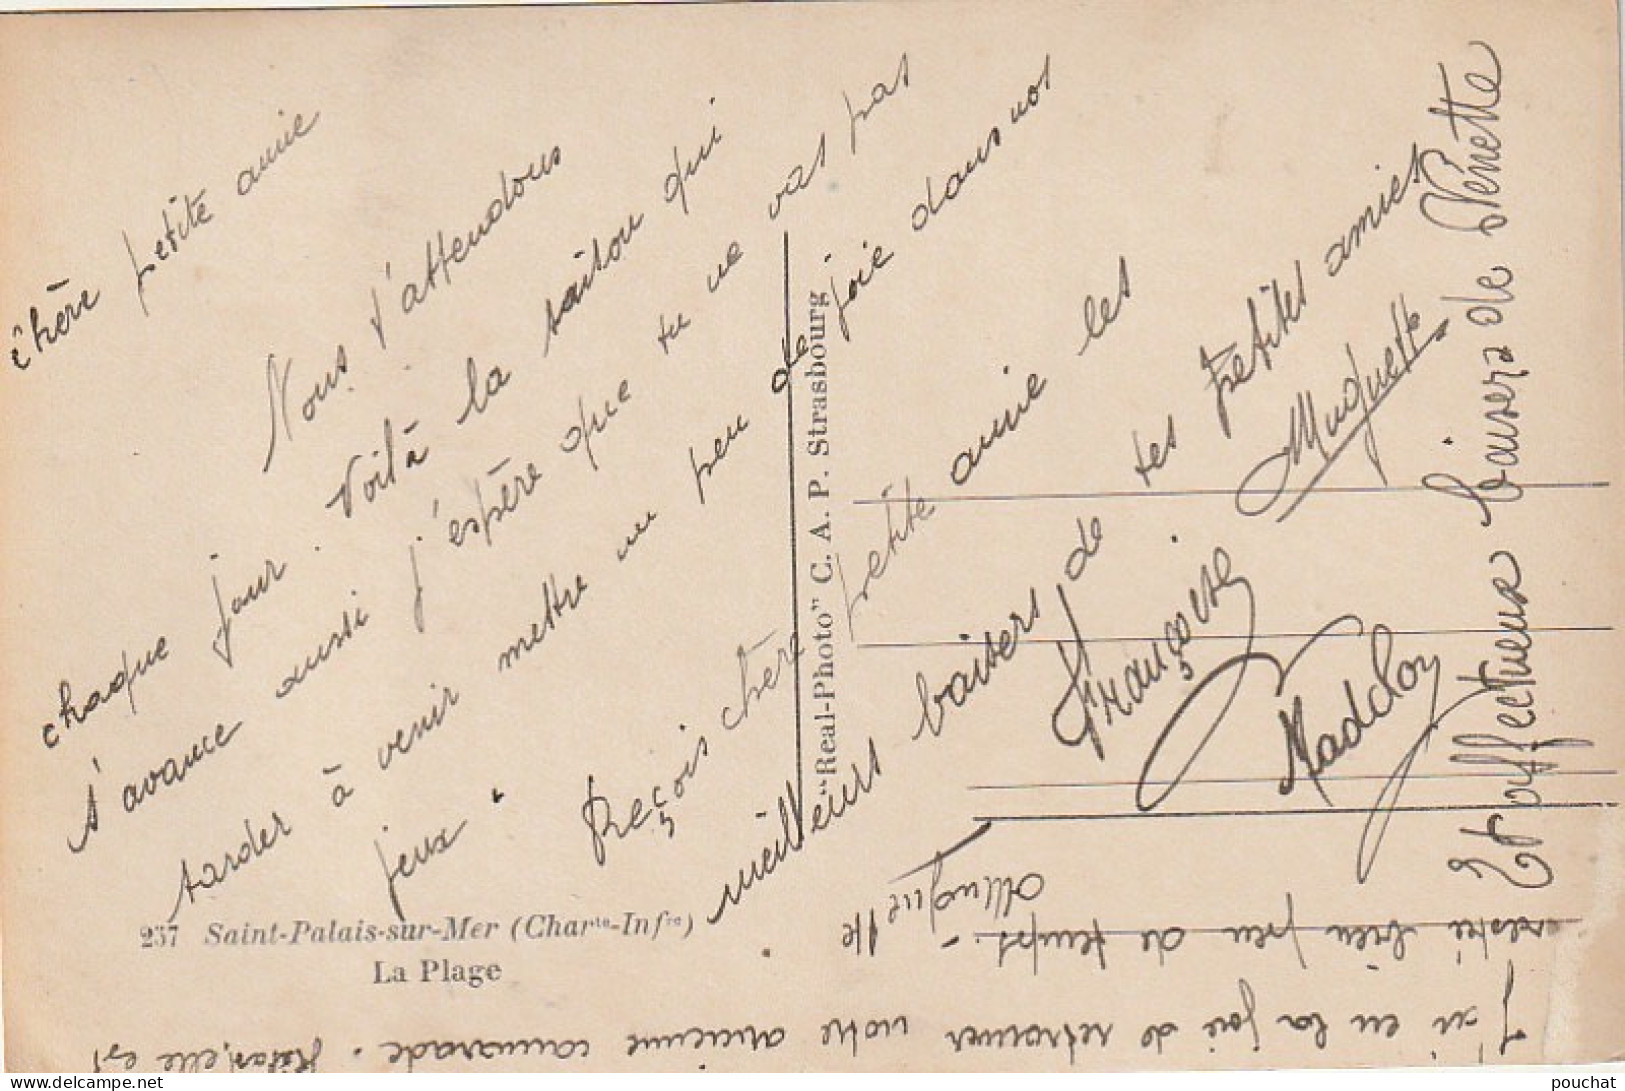 chère petite amie
Nous t'attendons
chaque jour. Voilà la saison qui
s'avance aussi j'espère que tu ne vas pas
tarder à venir mettre un peu de joie dans nos
jeux. Reçois chère petite amie les
meilleurs baisers de tes petites amies
Françoise Muguette
Madelon
Et affectueux baisers de Nénette
J'ai eu la joie de retrouver notre ancienne camarade. Hélas, elle est
restée bien peu de temps. -
237 Saint-Palais-sur-Mer (Charte-Infre)
La Plage
"Real-Photo" C. A. P. Strasbourg
pouchat